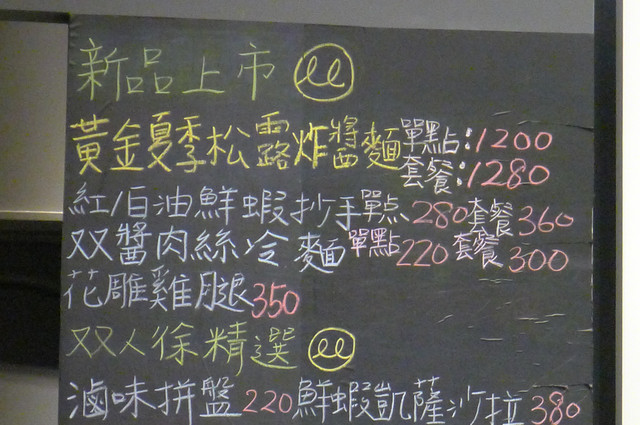 新品上市
黃金夏季松露炸醬麵 單點:1200
套餐:1280
紅/白油鮮蝦抄手 單点 280 套餐 360
双醬肉絲冷麵 單點 220 套餐 300
花雕雞腿 350
双人徐精選
滷味拼盤 220 鮮蝦凱薩沙拉 380